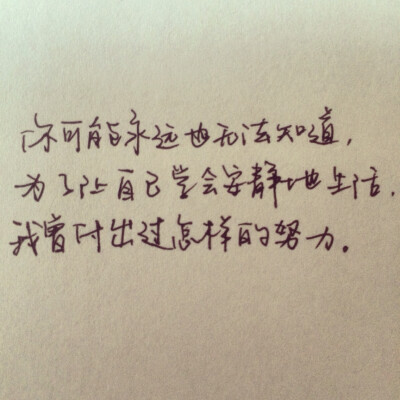 你可能永远也无法知道，
为了让自己学会安静地生活，
我曾付出过怎样的努力。